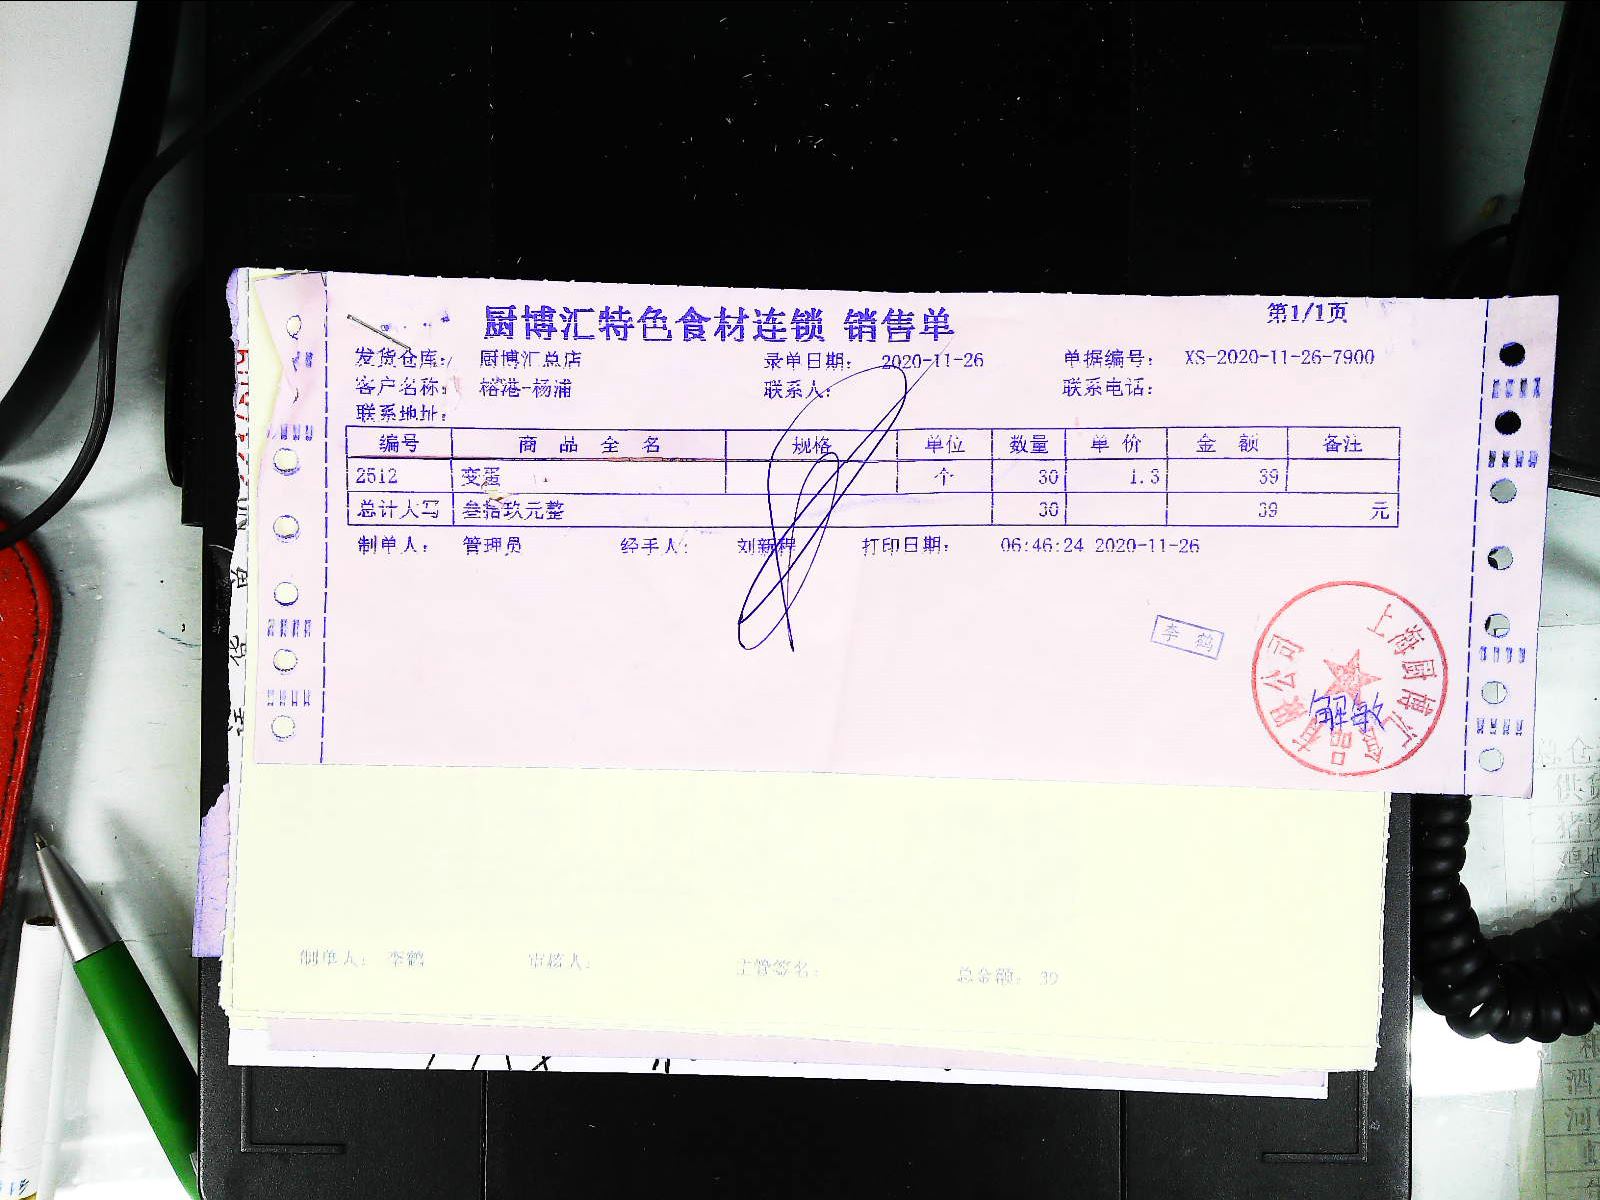 厨博汇特色食材连锁 销售单
第1/1页
发货仓库: 厨博汇总店 录单日期: 2020-11-26 单据编号: XS-2020-11-26-7900
客户名称: 榕港-杨浦 联系人: 联系电话:
联系地址:
编号 商品全名 规格 单位 数量 单价 金额 备注
2512 变蛋 个 30 1.3 39
总计大写 叁拾玖元整 30 39 元
制单人: 管理员 经手人: 刘新程 打印日期: 06:46:24 2020-11-26
李鹤
上海厨博汇食品有限公司
解敏
制单人: 李鹤 审核人: 主管签名: 总金额: 39